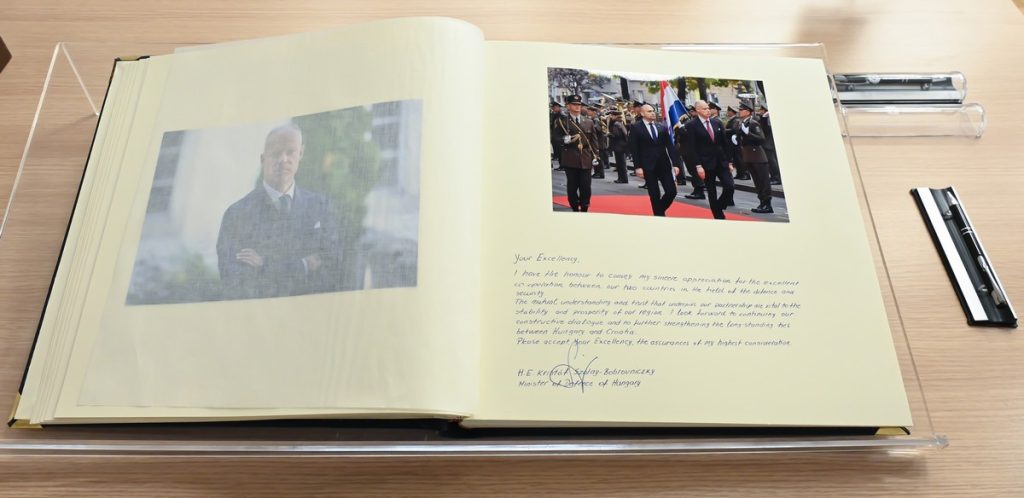 Your Excellency,
I have the honour to convey my sincere appreciation for the excellent
co-operation between our two countries in the field of the defence and
security.
The mutual understanding and trust that underpins our partnership are vital to the
stability and prosperity of our region. I look forward to continuing our
constructive dialogue and to further strengthening the long-standing ties
between Hungary and Croatia.
Please accept, Your Excellency, the assurances of my highest consideration
H.E. Kristóf Szalay-Bobrovniczky
Minister of Defence of Hungary